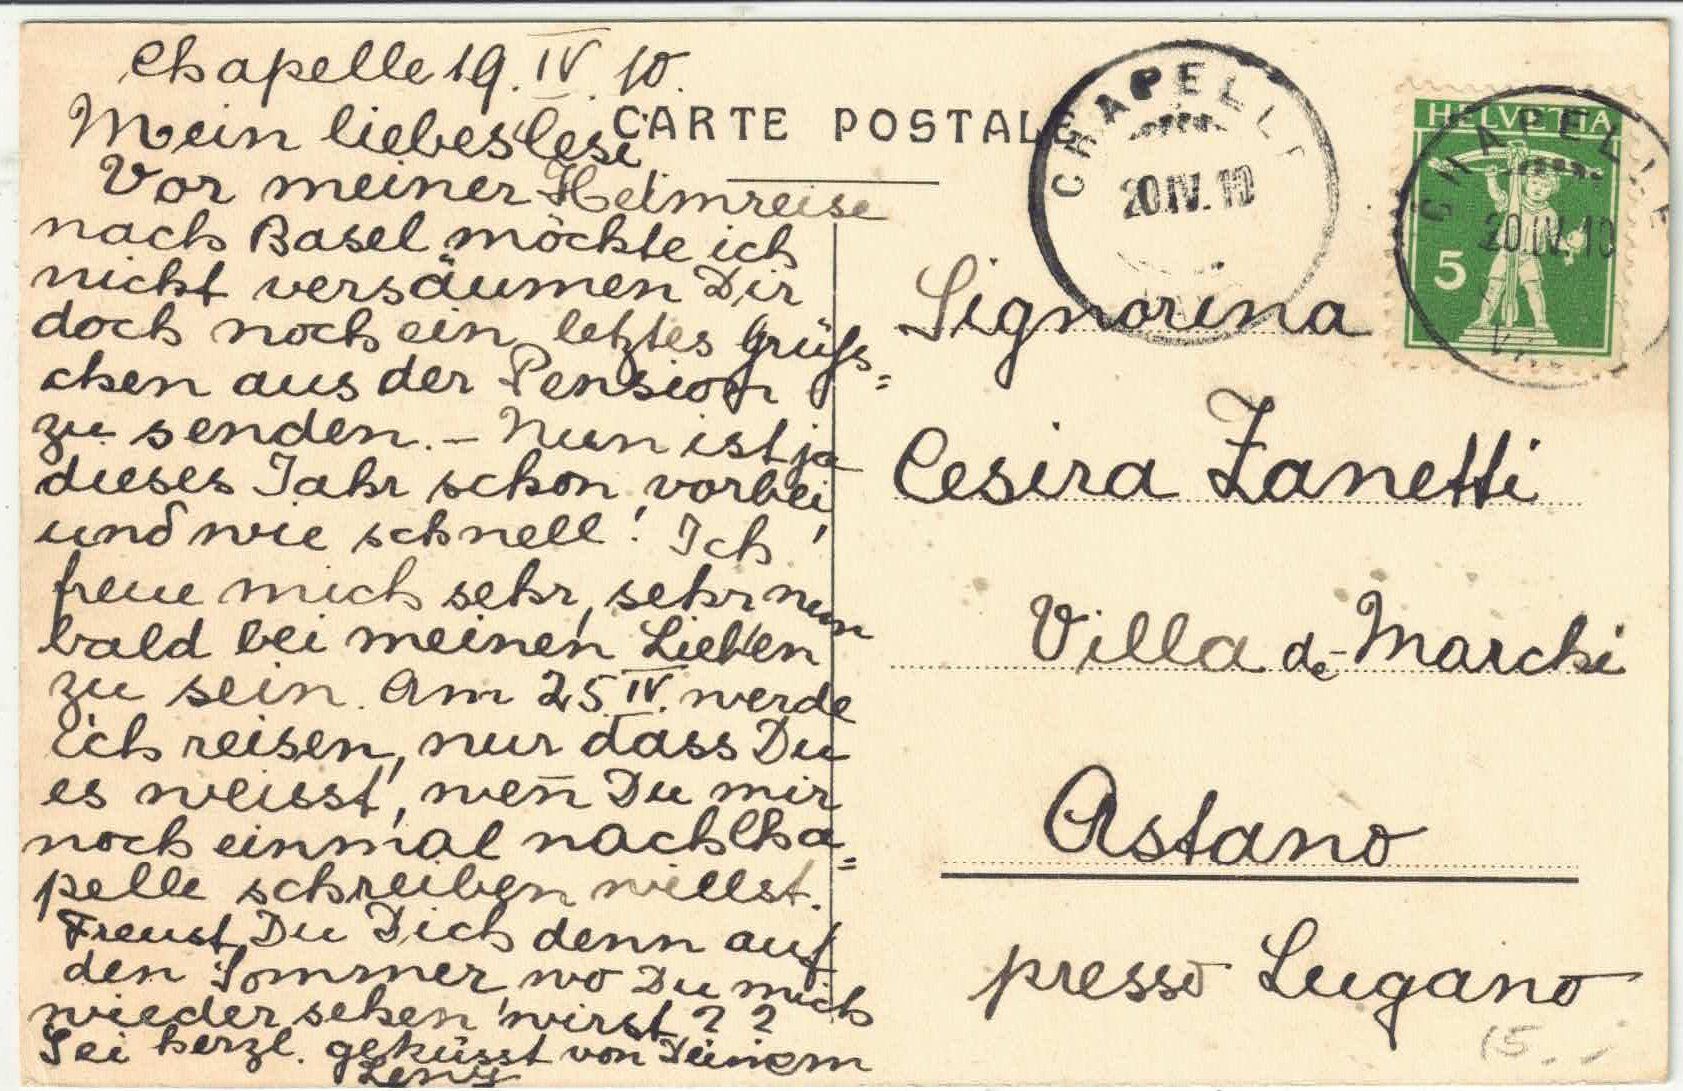 Chapelle 19. IV. 10.
CARTE POSTALE
Mein liebes Cesi
Vor meiner Heimreise
nach Basel möchte ich
nicht versäumen Dir
doch noch ein letztes Grüss=
chen aus der Pension
zu senden. – Nun ist ja
dieses Jahr schon vorbei,
und wie schnell! Ich
freue mich sehr, sehr nun
bald bei meinen Lieben
zu sein. Am 25. IV. werde
ich reisen, nur dass Du
es weisst, weñ Du mir
noch einmal nach Cha=
pelle schreiben willst.
Freust Du Dich denn auf
den Sommer, wo Du mich
wieder sehen wirst??
Sei herzl. geküsst von Deinem
Leny
CHAPELLE
20.IV.10
HELVETIA
5
CHAPELLE
20.IV.10
Signorina
Cesira Zanetti
Villa de-Marchi
Astano
presso Lugano
15.-